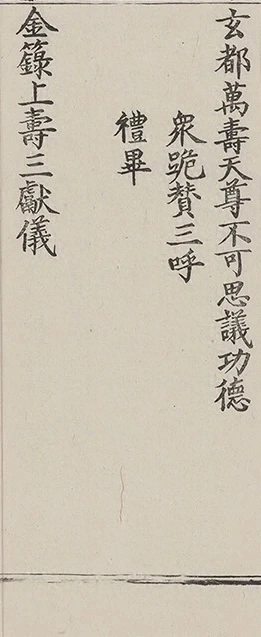 玄都萬壽天尊不可思議功德
衆跪賛三呼
禮畢
金籙上壽三獻儀